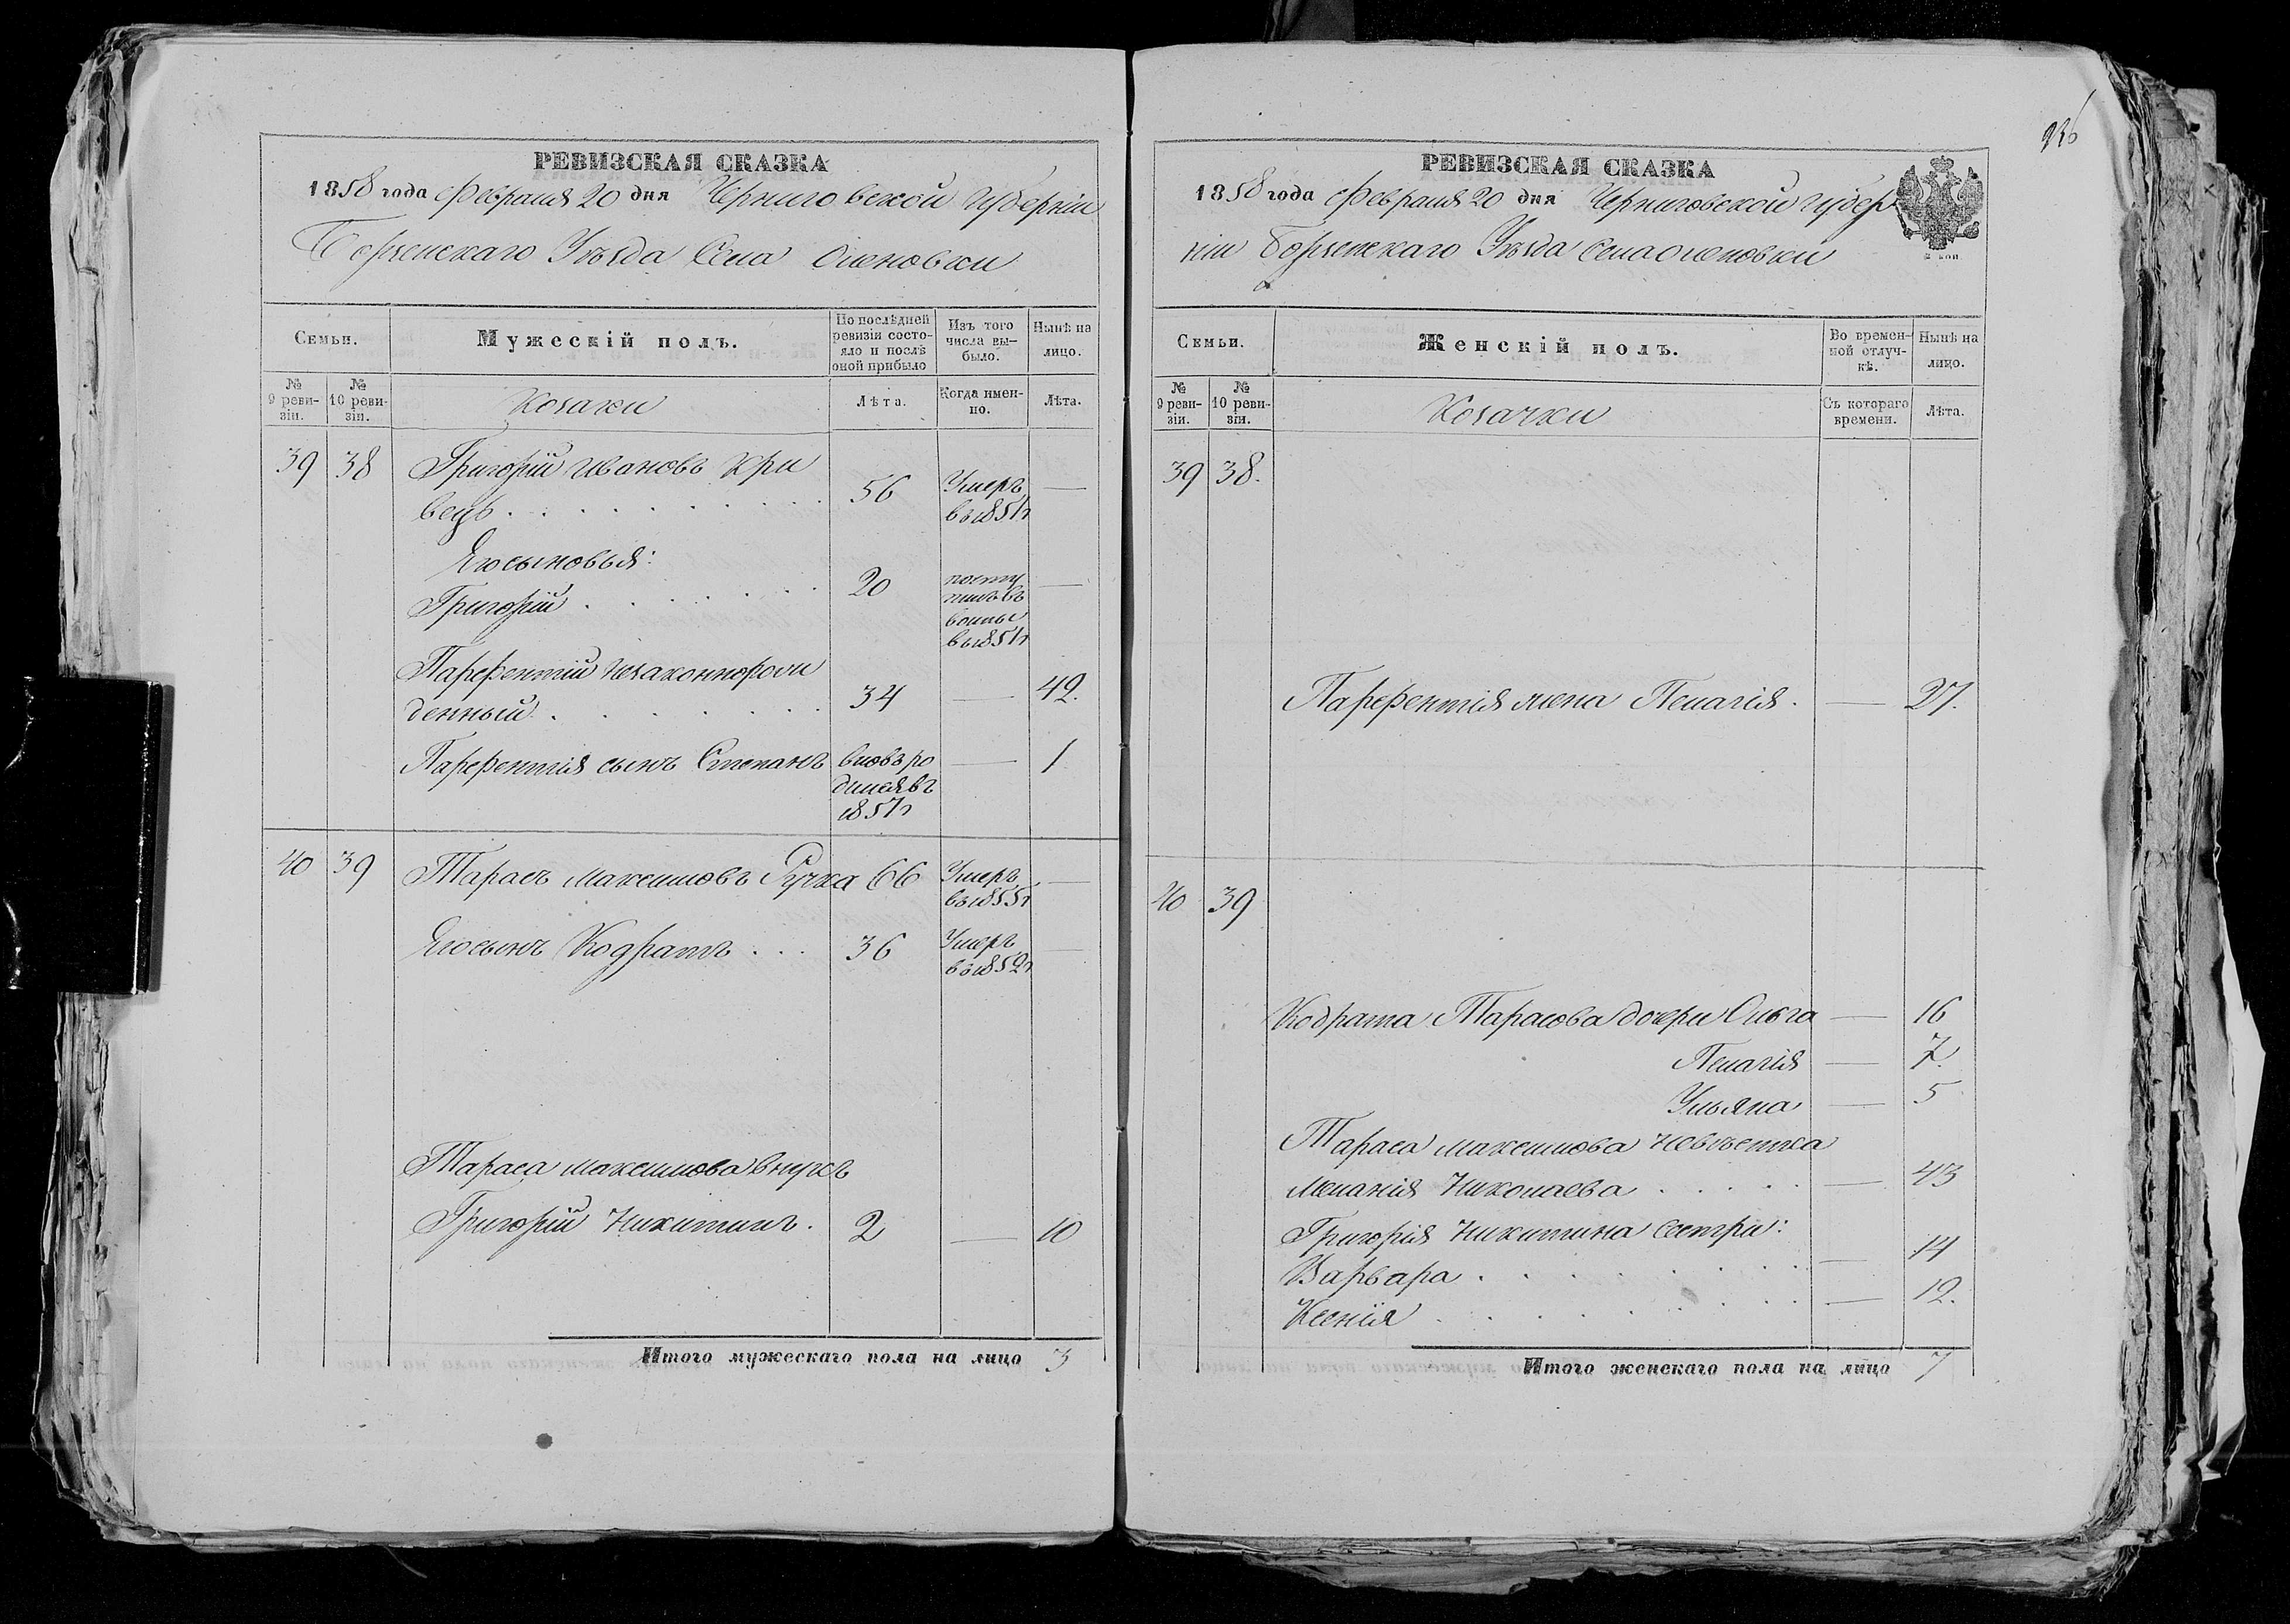 РЕВИЗСКАЯ СКАЗКА
1858 года Февраля 20 дня Черниговской Губерніи
Борзенскаго Уѣзда Села Оленовки
Семьи.
Мужескій полъ.
По послѣдней ревизіи состояло и послѣ оной прибыло
Изъ того числа выбыло.
Нынѣ на лицо.
№ 9 ревизіи.
№ 10 ревизіи.
Козаки
Лѣта.
Когда именно.
Лѣта.
39 38 Григорій Ивановъ Кри
вецъ 56 Умеръ въ 1851 г —
Его сыновья:
Григорій 20 посту
пилъ въ
воины
въ 1851 г —
Парфентій незаконнорож
денный 34 — 42.
Парфентія сынъ Степанъ вновь ро
дился въ
1857 г — 1
40 39 Тарасъ Максимовъ Ручка 66 Умеръ
въ 1855 г —
Его сынъ Кодратъ 36 Умеръ
въ 1852 г —
Тараса Максимова внукъ
Григорій Никитинъ. 2 — 10
Итого мужескаго пола на лицо 3
РЕВИЗСКАЯ СКАЗКА
1858 года Февраля 20 дня Черниговской Губер
ніи Борзенскаго Уѣзда Села Оленовки
Семьи.
Женскій полъ.
Во временной отлучкѣ.
Нынѣ на лицо.
№ 9 ревизіи.
№ 10 ревизіи.
Козачки
Съ котораго времени.
Лѣта.
39 38.
Парфентія жена Пелагія. — 27.
40 39
Кодрата Тарасова дочери Ольга — 16
Пелагія — 7.
Ульяна — 5
Тараса Максимова невѣстка
Меланія Николаева — 43
Григорія Никитина сестри:
Варвара — 14
Ксенія — 12.
Итого женскаго пола на лицо 7